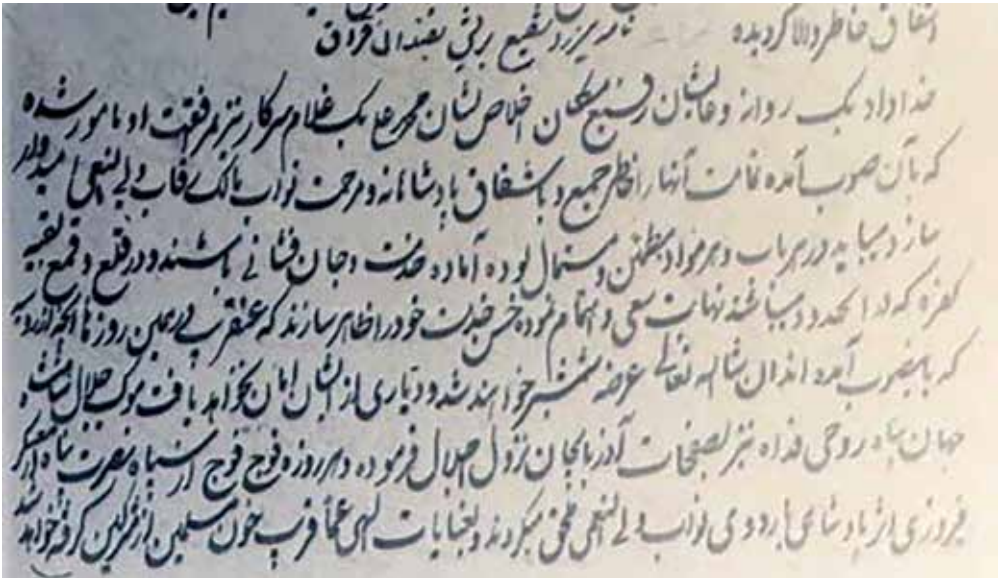 اشفاق خاطر والا گردیده
خداداد بیک روانه و عالیشان رفیع مکان اخلاص نشان محمد علی بیک غلام سرکار نیز برفقت او مامور شده
که بآن صوب آمده غایت آنها را خاطر جمیع و باشفاق پادشاهانه و مرحمت نواب مالک رقاب ولی النعمی امیدوار
سازد میباید در هر باب و هر مواد مطمئن و مستمال بوده آماده خدمت و جان فشانی باشند و در قلع و قمع بقیه
کفره که در آنحدود میباشند نهایت سعی و اهتمام نموده حسن خدمت خود را ظاهر سازند که عنقریب در همین روزها آنچه از روسیه
که باینصوب آمده اند ان شاء الله تعالی عرضه شمشیر خواهند شد و دیاری از ایشان امان نخواهد یافت موکب جلال شاهنشاه
جهان پناه روحی فداه نیز بصفحات آذربایجان نزول اجلال فرموده و هر روزه فوج فوج از سپاه نصرت پناه از معسکر
فیروزی اثر پادشاهی باردوی نواب ولی النعمی ملحق میگردند و بعنایات الهی عما قریب خون مسلمین از مشرکین گرفته خواهد شد